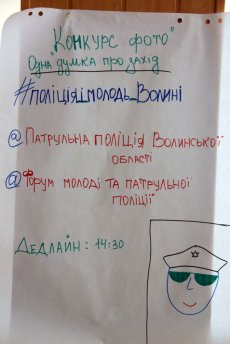 "Конкурс фото"
Одна думка про захід
#поліція_і_молодь_Волині
@ Патрульна поліція Волинської
області
@ Форум молоді та патрульної
поліції"
Дедлайн: 14:30